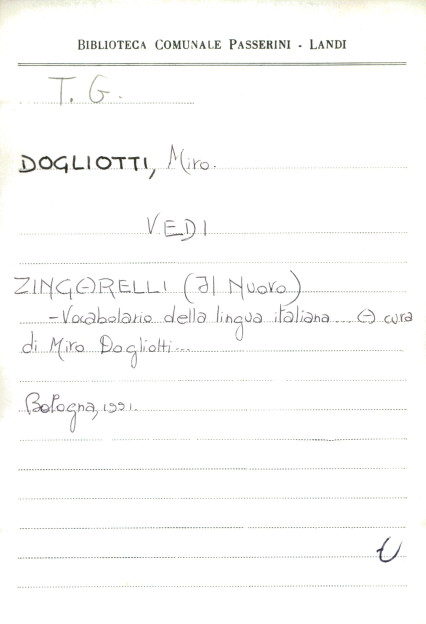 BIBLIOTECA COMUNALE PASSERINI - LANDI
T. G.
DOGLIOTTI, Miro.
VEDI
ZINGARELLI (Il Nuovo)
-Vocabolario della lingua italiana... A cura
di Miro Dogliotti...
Bologna, 1991.